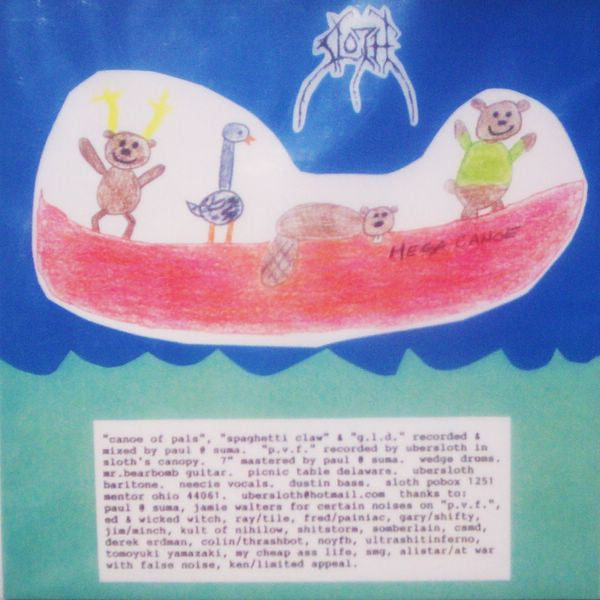 SLOTH
MEGA CANOE
"canoe of pals", "spaghetti claw" & "g.l.d." recorded &
mixed by paul @ suma.  "p.v.f." recorded by ubersloth in
sloth's canopy.  7" mastered by paul @ suma.  wedge drums.
mr.bearbomb guitar.  picnic table delaware.  ubersloth
baritone.  neecie vocals.  dustin bass.  sloth pobox 1251
mentor ohio 44061.  ubersloth@hotmail.com  thanks to:
paul @ suma, jamie walters for certain noises on "p.v.f.",
ed & wicked witch, ray/tile, fred/painiac, gary/shifty,
jim/minch, kult of nihilow, shitstorm, somberlain, csmd,
derek erdman, colin/thrashbot, noyfb, ultrashitinferno,
tomoyuki yamazaki, my cheap ass life, smg, alistar/at war
with false noise, ken/limited appeal.